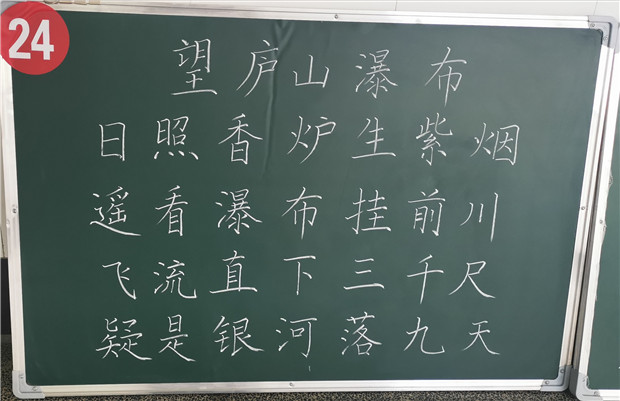 24
望庐山瀑布
日照香炉生紫烟
遥看瀑布挂前川
飞流直下三千尺
疑是银河落九天